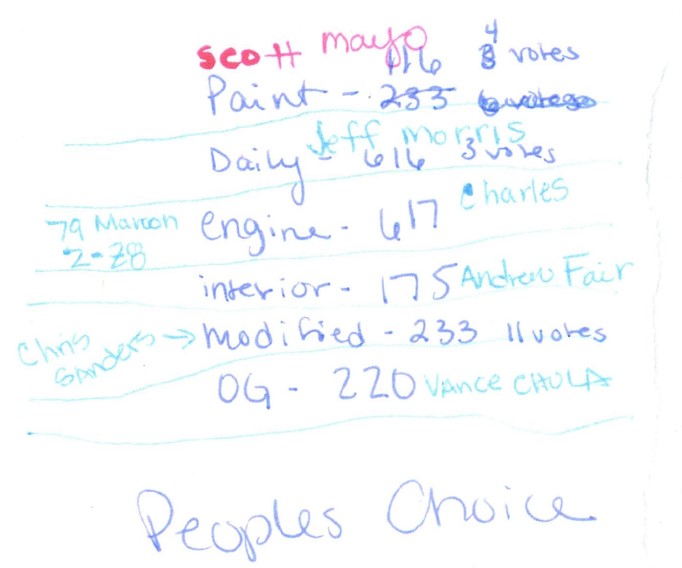 scott mayo
116 4 votes
Paint - 233
Jeff Morris
Daily - 616 3 votes
Charles
79 Maroon engine - 617
Z-28
interior - 175 Andrew Fair
Chris Sanders → modified - 233 11 votes
OG - 220 VANCE CHULA
Peoples Choice